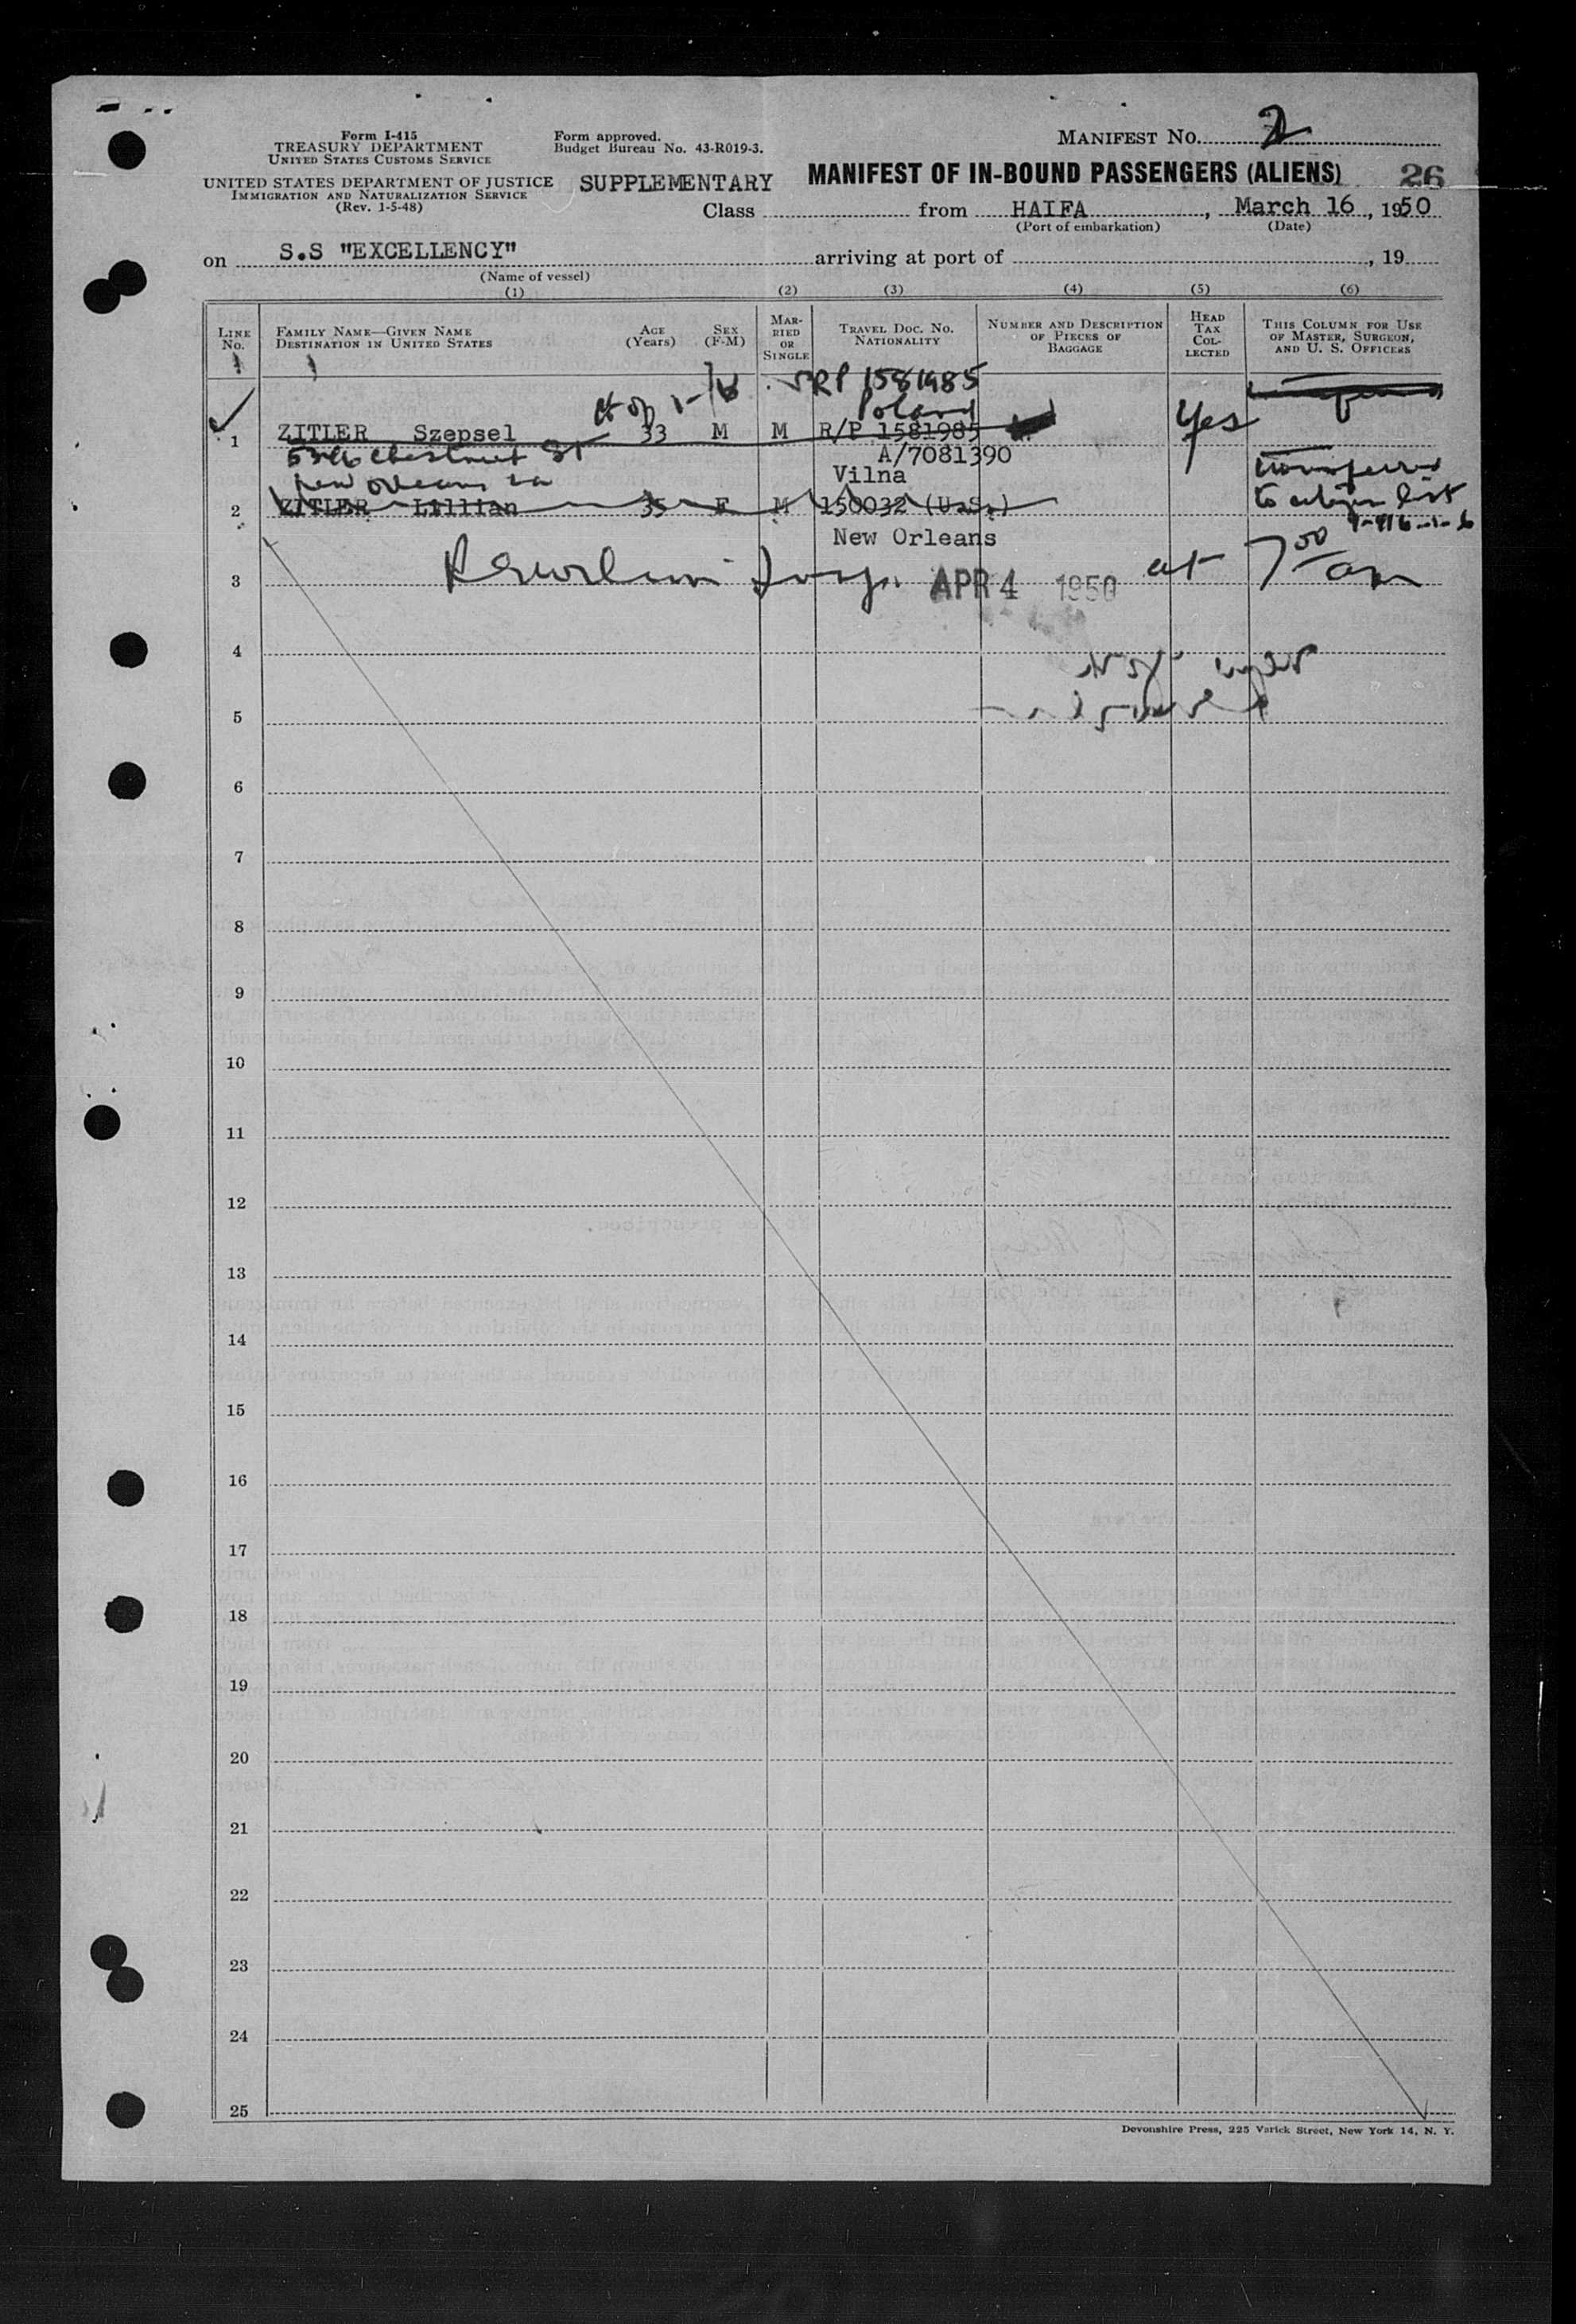 Form I-415
TREASURY DEPARTMENT
UNITED STATES CUSTOMS SERVICE
UNITED STATES DEPARTMENT OF JUSTICE
IMMIGRATION AND NATURALIZATION SERVICE
(Rev. 1-5-48)
Form approved.
Budget Bureau No. 43-R019-3.
MANIFEST No. 2
SUPPLEMENTARY MANIFEST OF IN-BOUND PASSENGERS (ALIENS) 26
Class from HAIFA, March 16, 1950
(Port of embarkation) (Date)
on S.S "EXCELLENCY" arriving at port of , 19
(Name of vessel)
(1) (2) (3) (4) (5) (6)
LINE No. FAMILY NAME—GIVEN NAME DESTINATION IN UNITED STATES AGE (Years) SEX (F-M) MARRIED OR SINGLE TRAVEL DOC. NO. NATIONALITY NUMBER AND DESCRIPTION OF PIECES OF BAGGAGE HEAD TAX COLLECTED THIS COLUMN FOR USE OF MASTER, SURGEON, AND U. S. OFFICERS
RP 1581985
Poland
1 ZITLER Szepsel 33 M M R/P 1581985 Yes
5346 Chestnut St A/7081390
New Orleans La Vilna
transferred
2 ZITLER Lillian 35 F M 150032 (U.S.) to citizen list
New Orleans
3 APR 4 1950 at 7 00 am
4
5
6
7
8
9
10
11
12
13
14
15
16
17
18
19
20
21
22
23
24
25
Devonshire Press, 225 Varick Street, New York 14, N. Y.